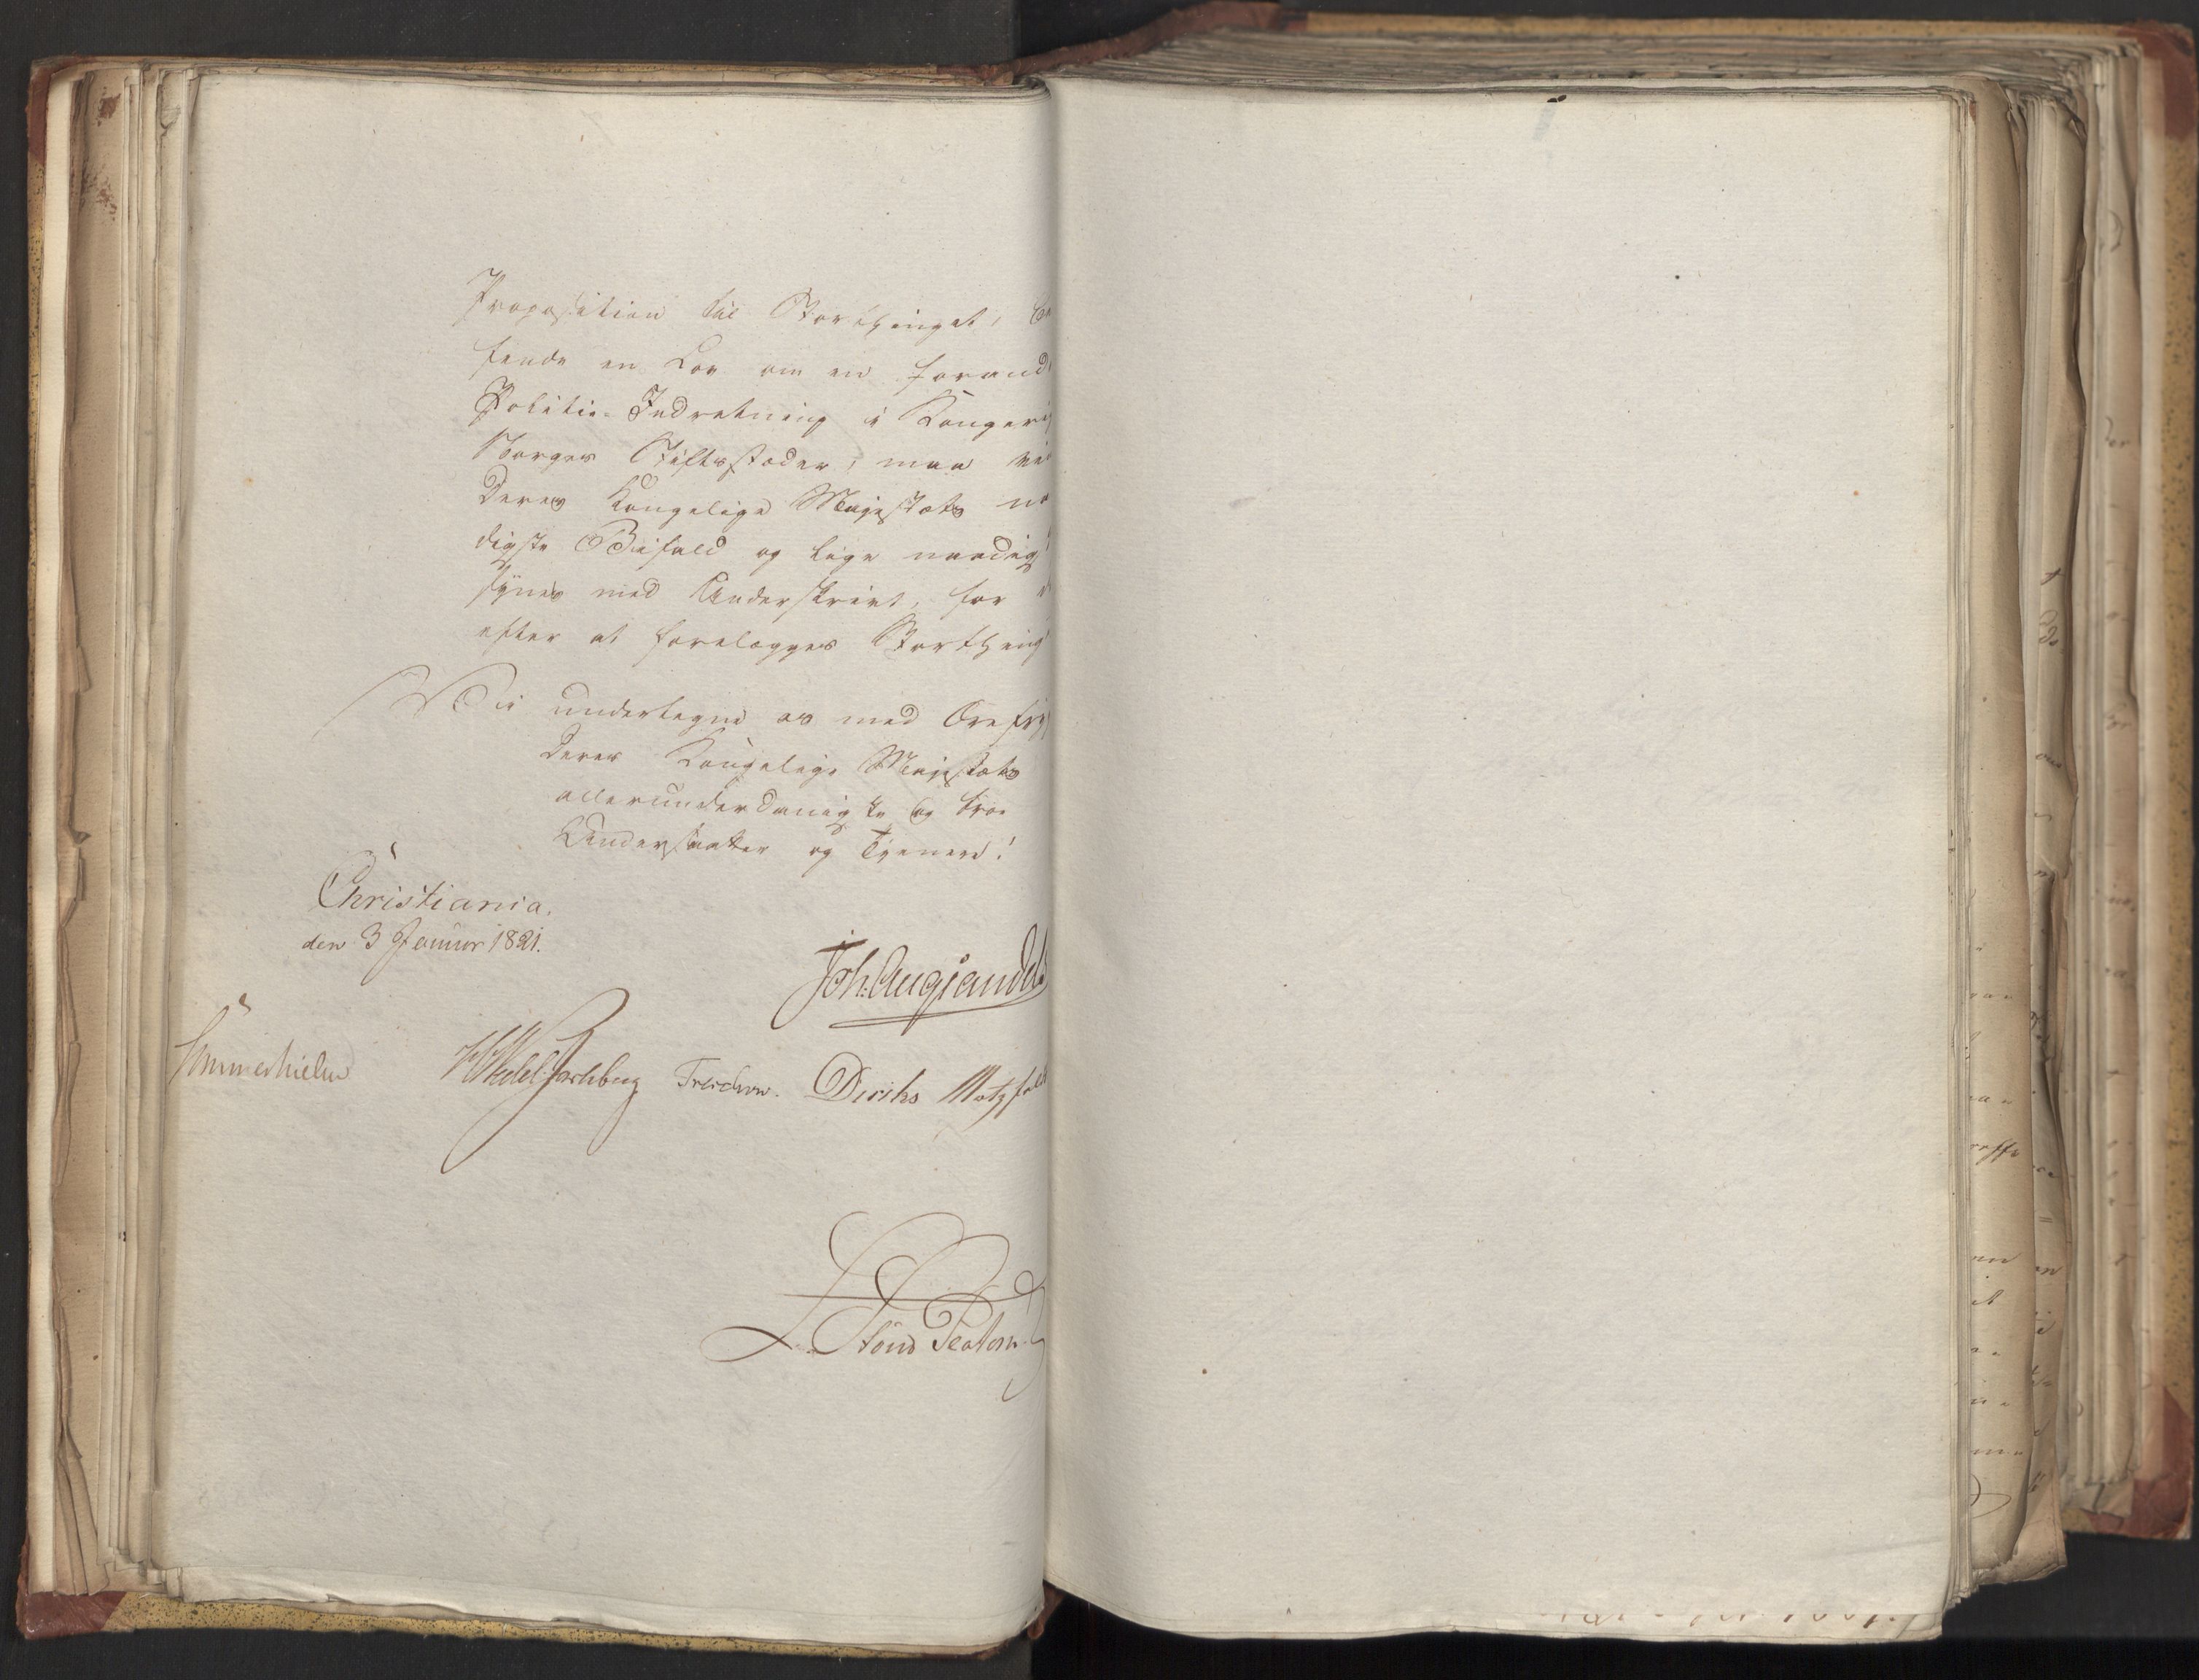 Proposition til Storthinget,
fende en Lov om en forand
Politie-Indretning i Kongeri
Norges Stiftsstæder, maa vi
Deres Kongelige Majestæts na
digste Bifald og lige naadig
synes med Underskrivt, for
efter at forelægges Storthing
Vi undertegne os med Ærefry
Deres Kongelige Majestæts
allerunderdanigste og troe
Undersaatter og Tjenere!
Christiania,
den 3 Januar 1821.
Joh: Aug: Sandels
Sommerhielm HWedel Jarlsberg Treschow. Diriks Motzfeldt